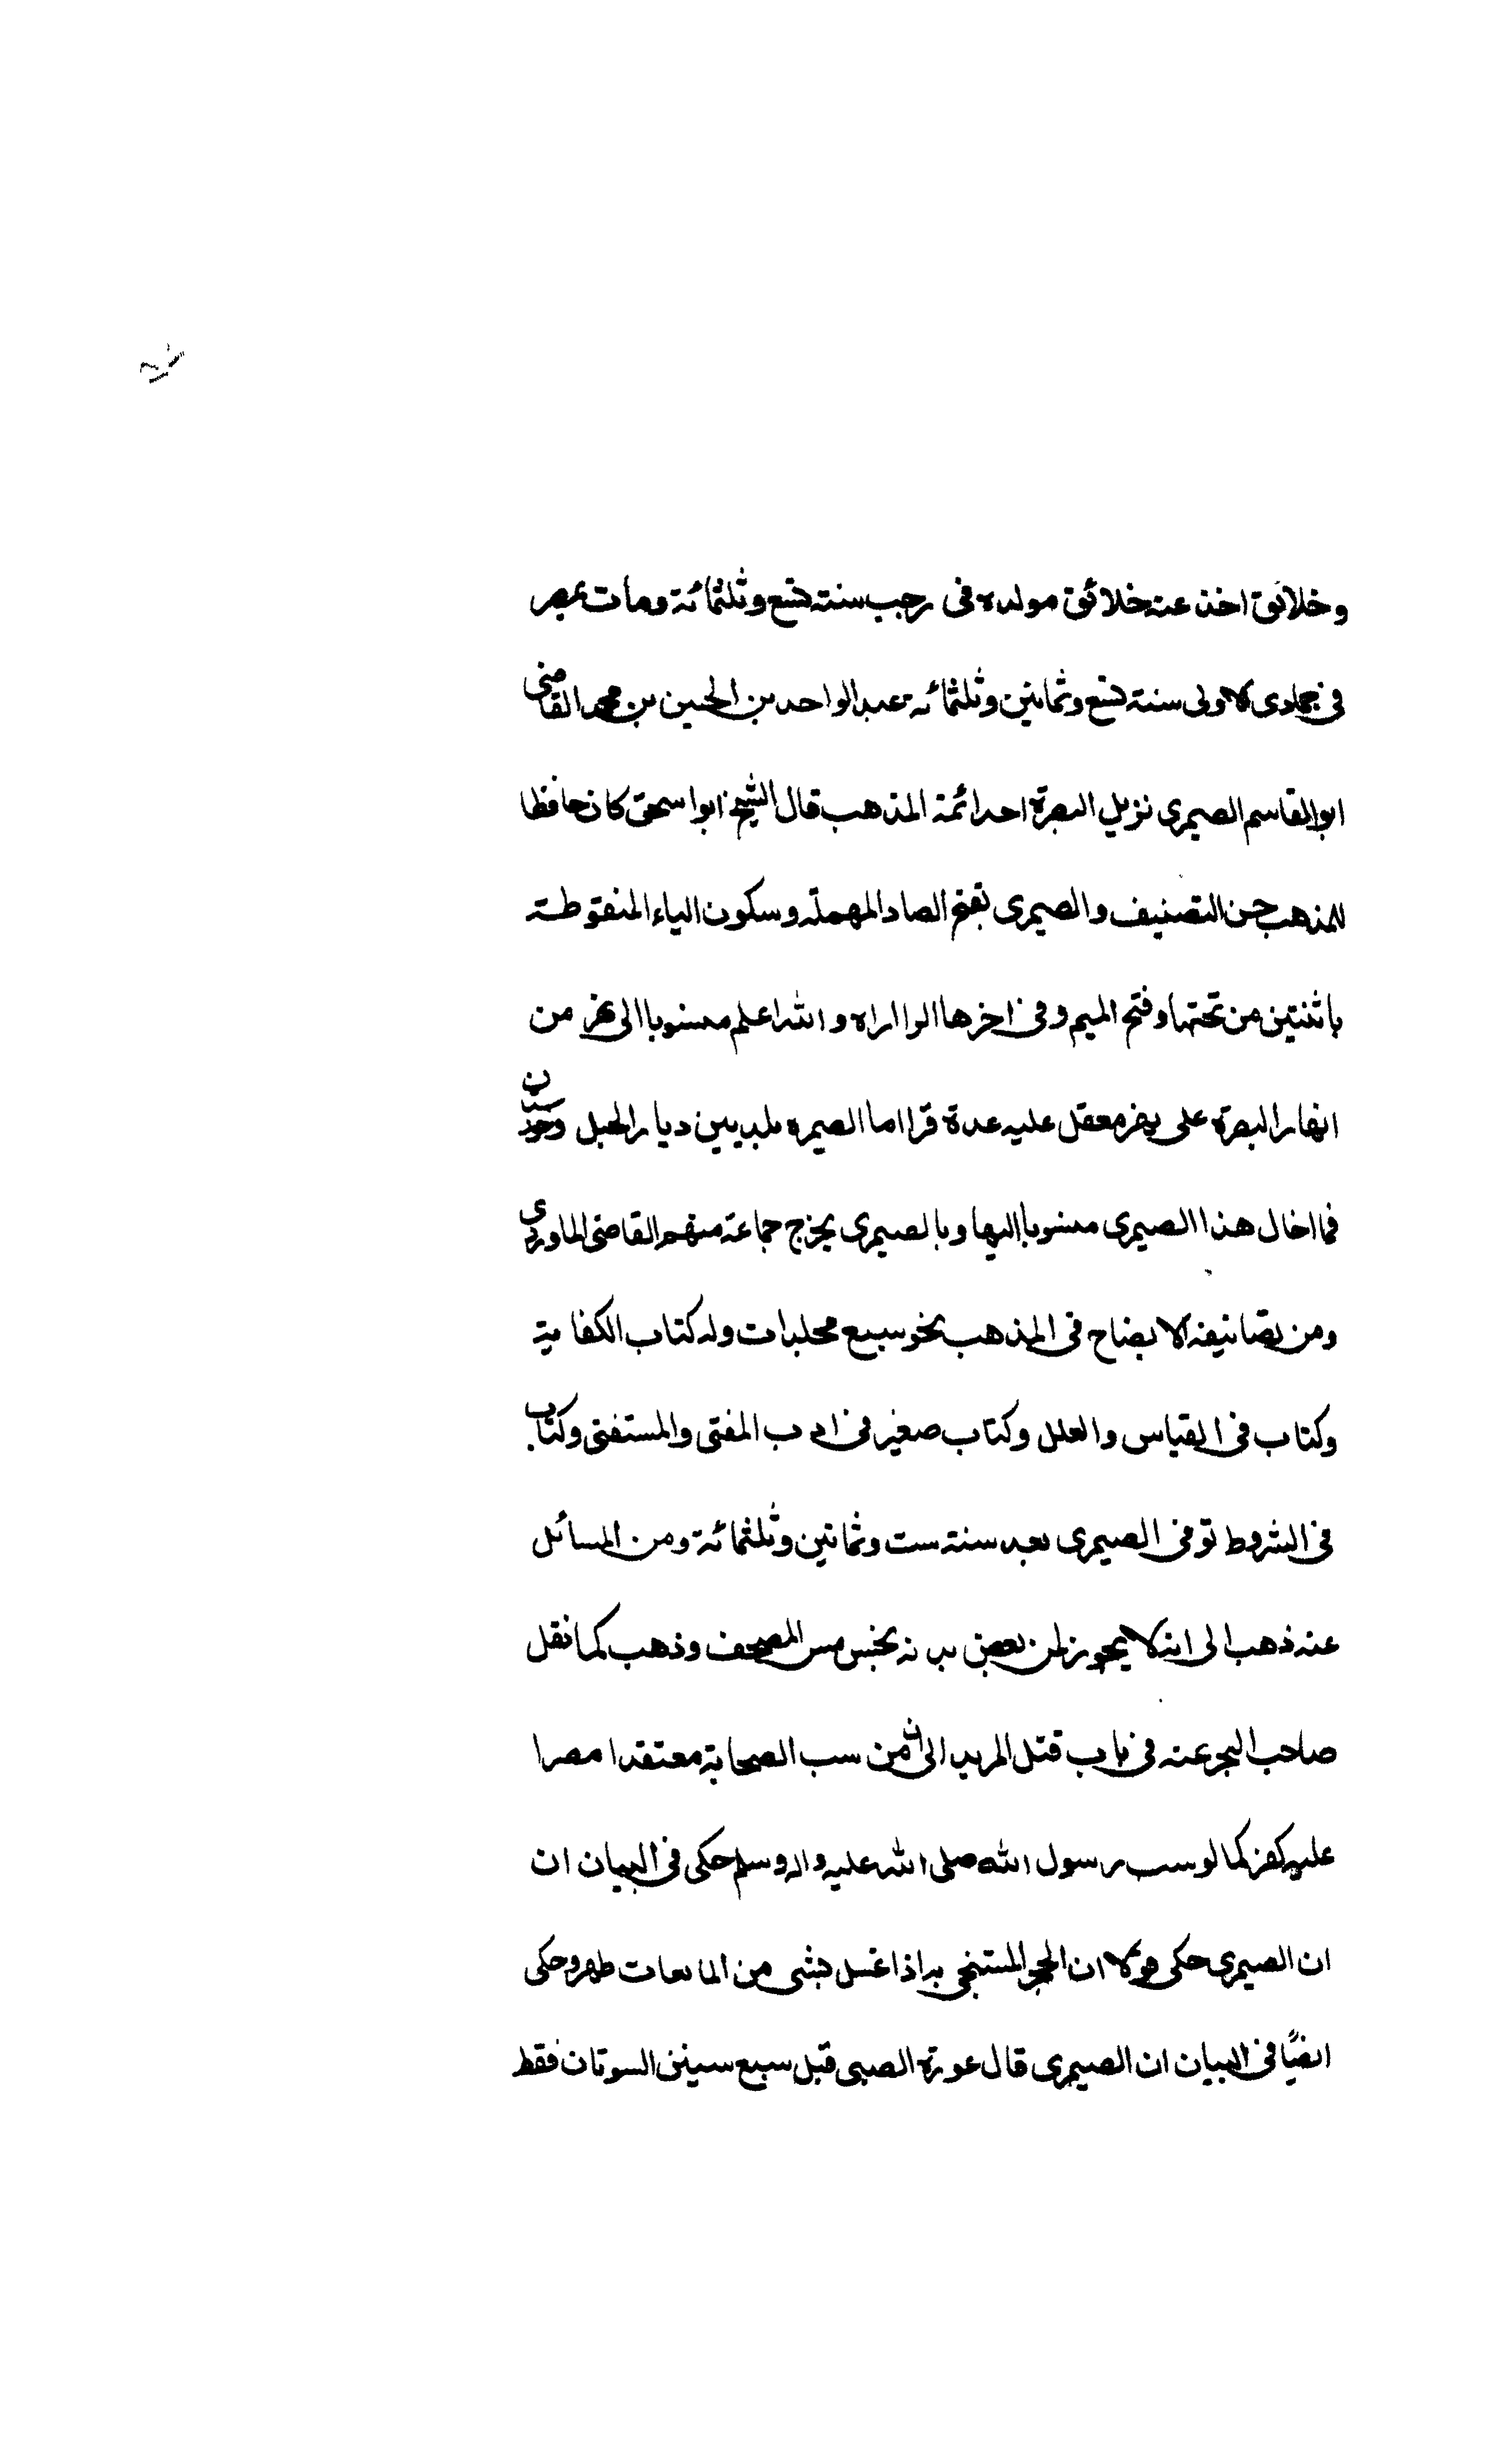 وخلائق اخذ عنه خلائق مولده فى رجب سنة تسع وثلثمائة ومات بمصر
فى جمادى الاولى سنة تسع وثمانين وثلثمائة عبد الواحد بن الحسين بن محمد القاضى
ابو القاسم الصيمرى نزيل البصرة احد ائمة المذهب قال الشيخ ابو اسحق كان حافظا
للمذهب حسن التصنيف والصيمرى بفتح الصاد المهملة وسكون الياء المنقوطة
باثنتين من تحتها وفتح الميم وفى اخرها الراه والله اعلم منسوبا الى نهر من
انهار البصرة على نهر معقل عليه عدة قرا اما الصيمره بلد بين ديار الجبل وخوزستان
فما اخال هذا الصيمرى منسوبا اليها وبالصيمرى يخرج جماعة منهم القاضى الماوردى
ومن تصانيفه الايضاح فى المذهب نحو سبع مجلدات وله كتاب الكفاية
وكتاب فى القياس والعلل وكتاب صغير فى ادب المفتى والمستفتى وكتاب
فى الشروط توفى الصيمرى بعد سنة ست وثمانين وثلثمائة ومن المسائل
عنه ذهب الى انه لا يجوز لمن بعض بدنه نجس مس المصحف وذهب كما نقل
صاحب البحر عنه فى باب قتل المرتد الى ان من سب الصحابة معتقدا مصرا
عليه كفر كما لو سب رسول الله صلى الله عليه واله وسلم حكى فى البيان ان
ان الصيمرى حكى قولا ان الحجر المستنجى به اذا غسل بشى من المايعات طهر وحكى
ايضًا فى البيان ان الصيمرى قال عورة الصبى قبل سبع سنين السوتان فقط